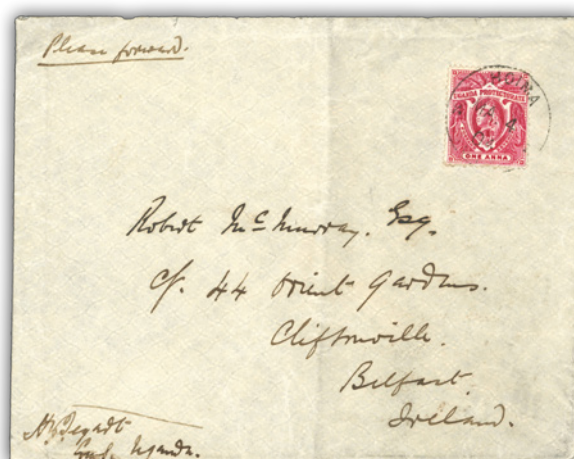 Please forward.
UGANDA PROTECTORATE
ONE ANNA
Robert McMurray. Esq.
c/. 44 Orient Gardens.
Cliftonville.
Belfast.
Ireland.
Uganda.